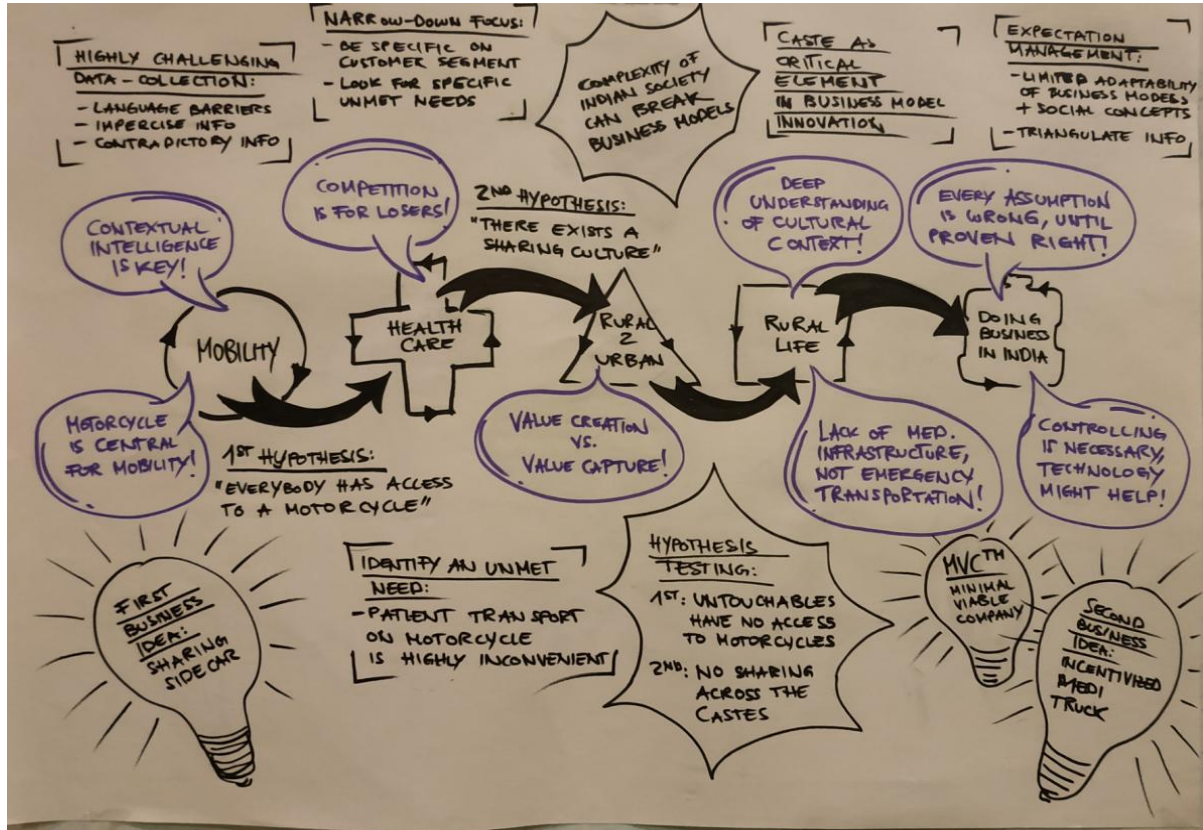 HIGHLY CHALLENGING
DATA-COLLECTION:
- LANGUAGE BARRIERS
- IMPERCISE INFO
- CONTRADICTORY INFO
NARROW-DOWN FOCUS:
- BE SPECIFIC ON
CUSTOMER SEGMENT
- LOOK FOR SPECIFIC
UNMET NEEDS
COMPLEXITY OF
INDIAN SOCIETY
CAN BREAK
BUSINESS MODELS
CASTE AS
CRITICAL
ELEMENT
IN BUSINESS MODEL
INNOVATION
EXPECTATION
MANAGEMENT:
- LIMITED ADAPTABILITY
OF BUSINESS MODELS
+ SOCIAL CONCEPTS
- TRIANGULATE INFO
CONTEXTUAL
INTELLIGENCE
IS KEY!
COMPETITION
IS FOR LOSERS!
2ND HYPOTHESIS:
"THERE EXISTS A
SHARING CULTURE"
DEEP
UNDERSTANDING
OF CULTURAL
CONTEXT!
EVERY ASSUMPTION
IS WRONG, UNTIL
PROVEN RIGHT!
MOBILITY
HEALTH
CARE
RURAL
2
URBAN
RURAL
LIFE
DOING
BUSINESS
IN INDIA
MOTORCYCLE
IS CENTRAL
FOR MOBILITY!
1ST HYPOTHESIS:
"EVERYBODY HAS ACCESS
TO A MOTORCYCLE"
VALUE CREATION
VS.
VALUE CAPTURE!
LACK OF MED.
INFRASTRUCTURE,
NOT EMERGENCY
TRANSPORTATION!
CONTROLLING
IS NECESSARY,
TECHNOLOGY
MIGHT HELP!
FIRST
BUSINESS
IDEA:
SHARING
SIDECAR
IDENTIFY AN UNMET
NEED:
- PATIENT TRANSPORT
ON MOTORCYCLE
IS HIGHLY INCONVENIENT
HYPOTHESIS
TESTING:
1ST: UNTOUCHABLES
HAVE NO ACCESS
TO MOTORCYCLES
2ND: NO SHARING
ACROSS THE
CASTES
MVC™
MINIMAL
VIABLE
COMPANY
SECOND
BUSINESS
IDEA:
INCENTIVIZED
MEDI
TRUCK